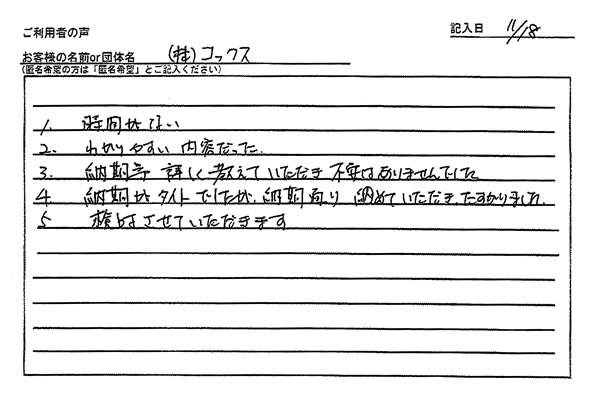 ご利用者の声
記入日 11/18
お客様の名前or団体名 (株)コックス
(匿名希望の方は「匿名希望」とご記入ください)
1. 時間がない
2. わかりやすい内容だった.
3. 納期等 詳しく教えていただき 不安はありませんでした
4 納期がタイトでしたが、納期通り 納めていただき、たすかりました.
5 検討させていただきます